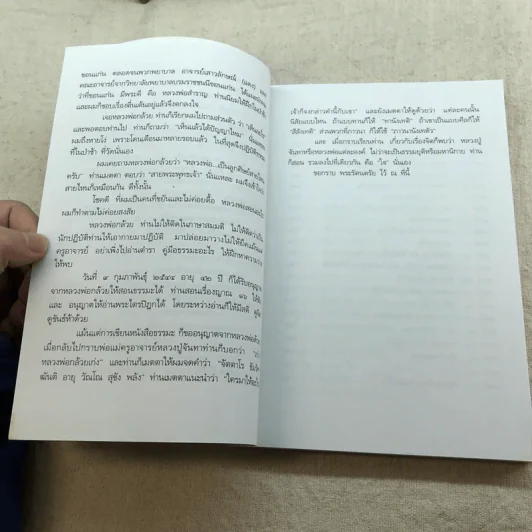 ขอนแก่น ตลอดจนพวกพยาบาล อาจารย์เสาวลักษณ์ (แดง) และ
คณะอาจารย์จากวิทยาลัยพยาบาลบรมราชชนนีขอนแก่น ได้แนะนำ
ว่าที่ขอนแก่น มีพระดี คือ หลวงพ่อสำราญ ท่านนิยมให้ฝึก
และผมก็ชอบเรื่องตื่นเต้นอยู่แล้วจึงตกลงใจ
เจอหลวงพ่อกล้วย ท่านก็เรียกผมไปถามส่วนตัว ว่า "เห็นอะไร
และพอตอบท่านไป ท่านก็ถามว่า "เห็นแล้วได้ปัญญาไหม" นั่นแหละ
ผมถึงหายโง่ เพราะโดนเตือนมาหลายรอบแล้ว ในที่สุดจึงปฏิบัติธรรม
ที่ในป่าช้า ที่วัดนั่นเอง
ผมเคยถามหลวงพ่อกล้วยว่า "หลวงพ่อ...เป็นลูกศิษย์สายไหน
ครับ" ท่านเมตตา ตอบว่า "สายพระพุทธเจ้า" นั่นแหละ ผมจึงเข้าใจ
สายไหนก็เหมือนกัน ดีทั้งนั้น
โชคดี ที่ผมเป็นคนที่ขยันและไม่ค่อยดื้อ หลวงพ่อสอนอะไร
ผมก็ทำตามไม่ค่อยสงสัย
หลวงพ่อกล้วย ท่านไม่ให้ติดในภาษาสมมติ ไม่ให้ติดว่าเป็น
นักปฏิบัติท่านให้เอากายมาปฏิบัติ มาปล่อยมาวางไม่ให้ยึด
ครูอาจารย์ อย่าเพิ่งไปอ่านตำรา คู่มือธรรมะอะไร ให้ฝึกหาความว่าง
ให้พบ
วันที่ ๙ กุมภาพันธุ์ ๒๕๔๔ อายุ ๔๒ ปี ก็ได้รับอนุญาต
จากหลวงพ่อกล้วยให้สอนธรรมะได้ ท่านสอนเรื่องญาณ ๑๖ ให้
และ อนุญาตให้อ่านพระไตรปิฎกได้ โดยระหว่างอ่านก็ให้มีสติ ดูจิต
ดูขันธ์ห้าด้วย
แม้นแต่การเขียนหนังสือธรรมะ ก็ขออนุญาตจากหลวงพ่อด้วย
เมื่อกลับไปกราบพ่อแม่ครูอาจารย์หลวงปู่จันทาท่านก็บอกว่า
หลวงพ่อกล้วยเก่ง" และท่านก็เมตตาให้ผมจดคำว่า "จัตตาโร ธัมมา
ฒันติ อายุ วัณโณ สุขัง พลัง" ท่านเมตตาแนะนำว่า "ใครมาให้
เจ้าก็จงกล่าวคำนี้กับเขา" และยังเมตตาให้ดูด้วยว่า แต่ละคนนั้น
นิสัยแบบไหน ถ้าแบบทานก็ให้ "ทานังเทติ" ถ้าเขาเป็นแบบศีลก็ให้
"สีลังเทติ" ส่วนพวกที่ภาวนา ก็ให้ใช้ "ภาวนานังเทติ"
และ เมื่อกราบเรียนท่าน เกี่ยวกับเรื่องจิตก็พบว่า หลวงปู่
จันทาหรือหลวงพ่อแต่ละองค์ ไม่ว่าจะเป็นธรรมยุติหรือมหานิกาย ท่าน
ก็สอน รวมลงไปที่เดียวกัน คือ "ใจ" นั่นเอง
ขอกราบ พระรัตนตรัย ไว้ ณ ที่นี้